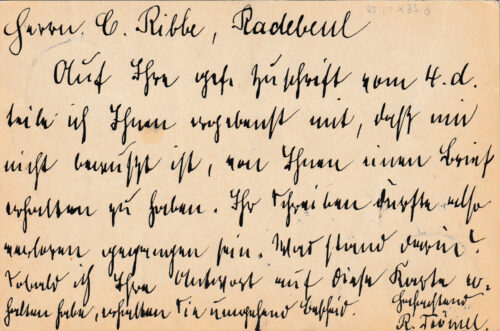 Herrn C. Ribbe, Radebeul
Auf Ihre gefl. Zuschrift vom 4. d.
teile ich Ihnen ergebenst mit, daß mir
nicht bewußt ist, von Ihnen einen Brief
erhalten zu haben. Ihr Schreiben dürfte also
verloren gegangen sein. Was stand darin?
Sobald ich Ihre Antwort auf diese Karte er-
halten habe, erhalten Sie umgehend Bescheid.
Hochachtend
R.